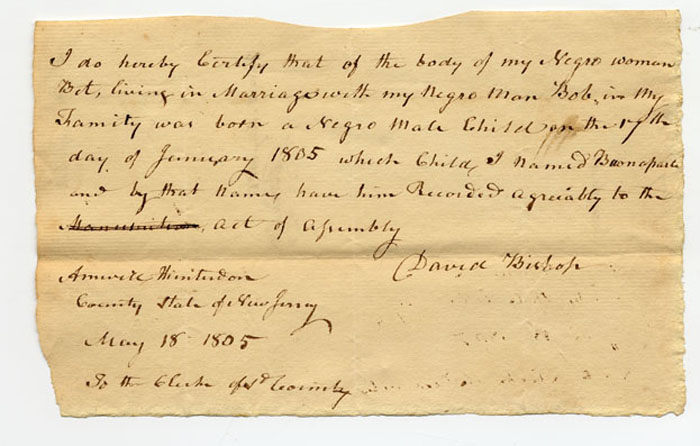 I do hereby Certify that of the body of my Negro woman
Bet, living in Marriage with my Negro Man Bob, in My
Family was born a Negro Male Child on the 17th
day of January 1805 which Child, I named Buonaparte
and by that name, have him Recorded agreiably to the
Manumition, act of assembly
David Bishop
Amwell Hunterdon
County State of New Jersey
May 18 1805
To the Clerk of sd County